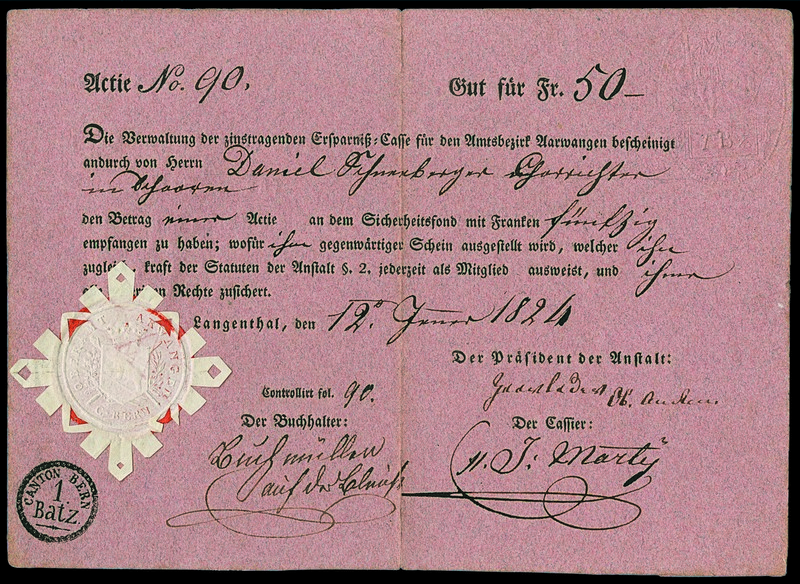 Actie No. 90.
Gut für Fr. 50 —
Die Verwaltung der zinstragenden Ersparniß-Casse für den Amtsbezirk Aarwangen bescheinigt
andurch von Herrn Daniel Schneeberger Chorrichter
in Schooren
den Betrag einer Actie an dem Sicherheitsfond mit Franken fünfzig
empfangen zu haben; wofür ihm gegenwärtiger Schein ausgestellt wird, welcher ihn
zugleich, kraft der Statuten der Anstalt §. 2. jederzeit als Mitglied ausweist, und ihme
Rechte zusichert.
Langenthal, den 12. Jenner 1824
Der Präsident der Anstalt:
Controllirt fol. 90.
Der Buchhalter:
Buchmüller
auf der
Der Cassier:
J: Marti
AARWANGEN
C. BERN
CANTON BERN
1
Batz.